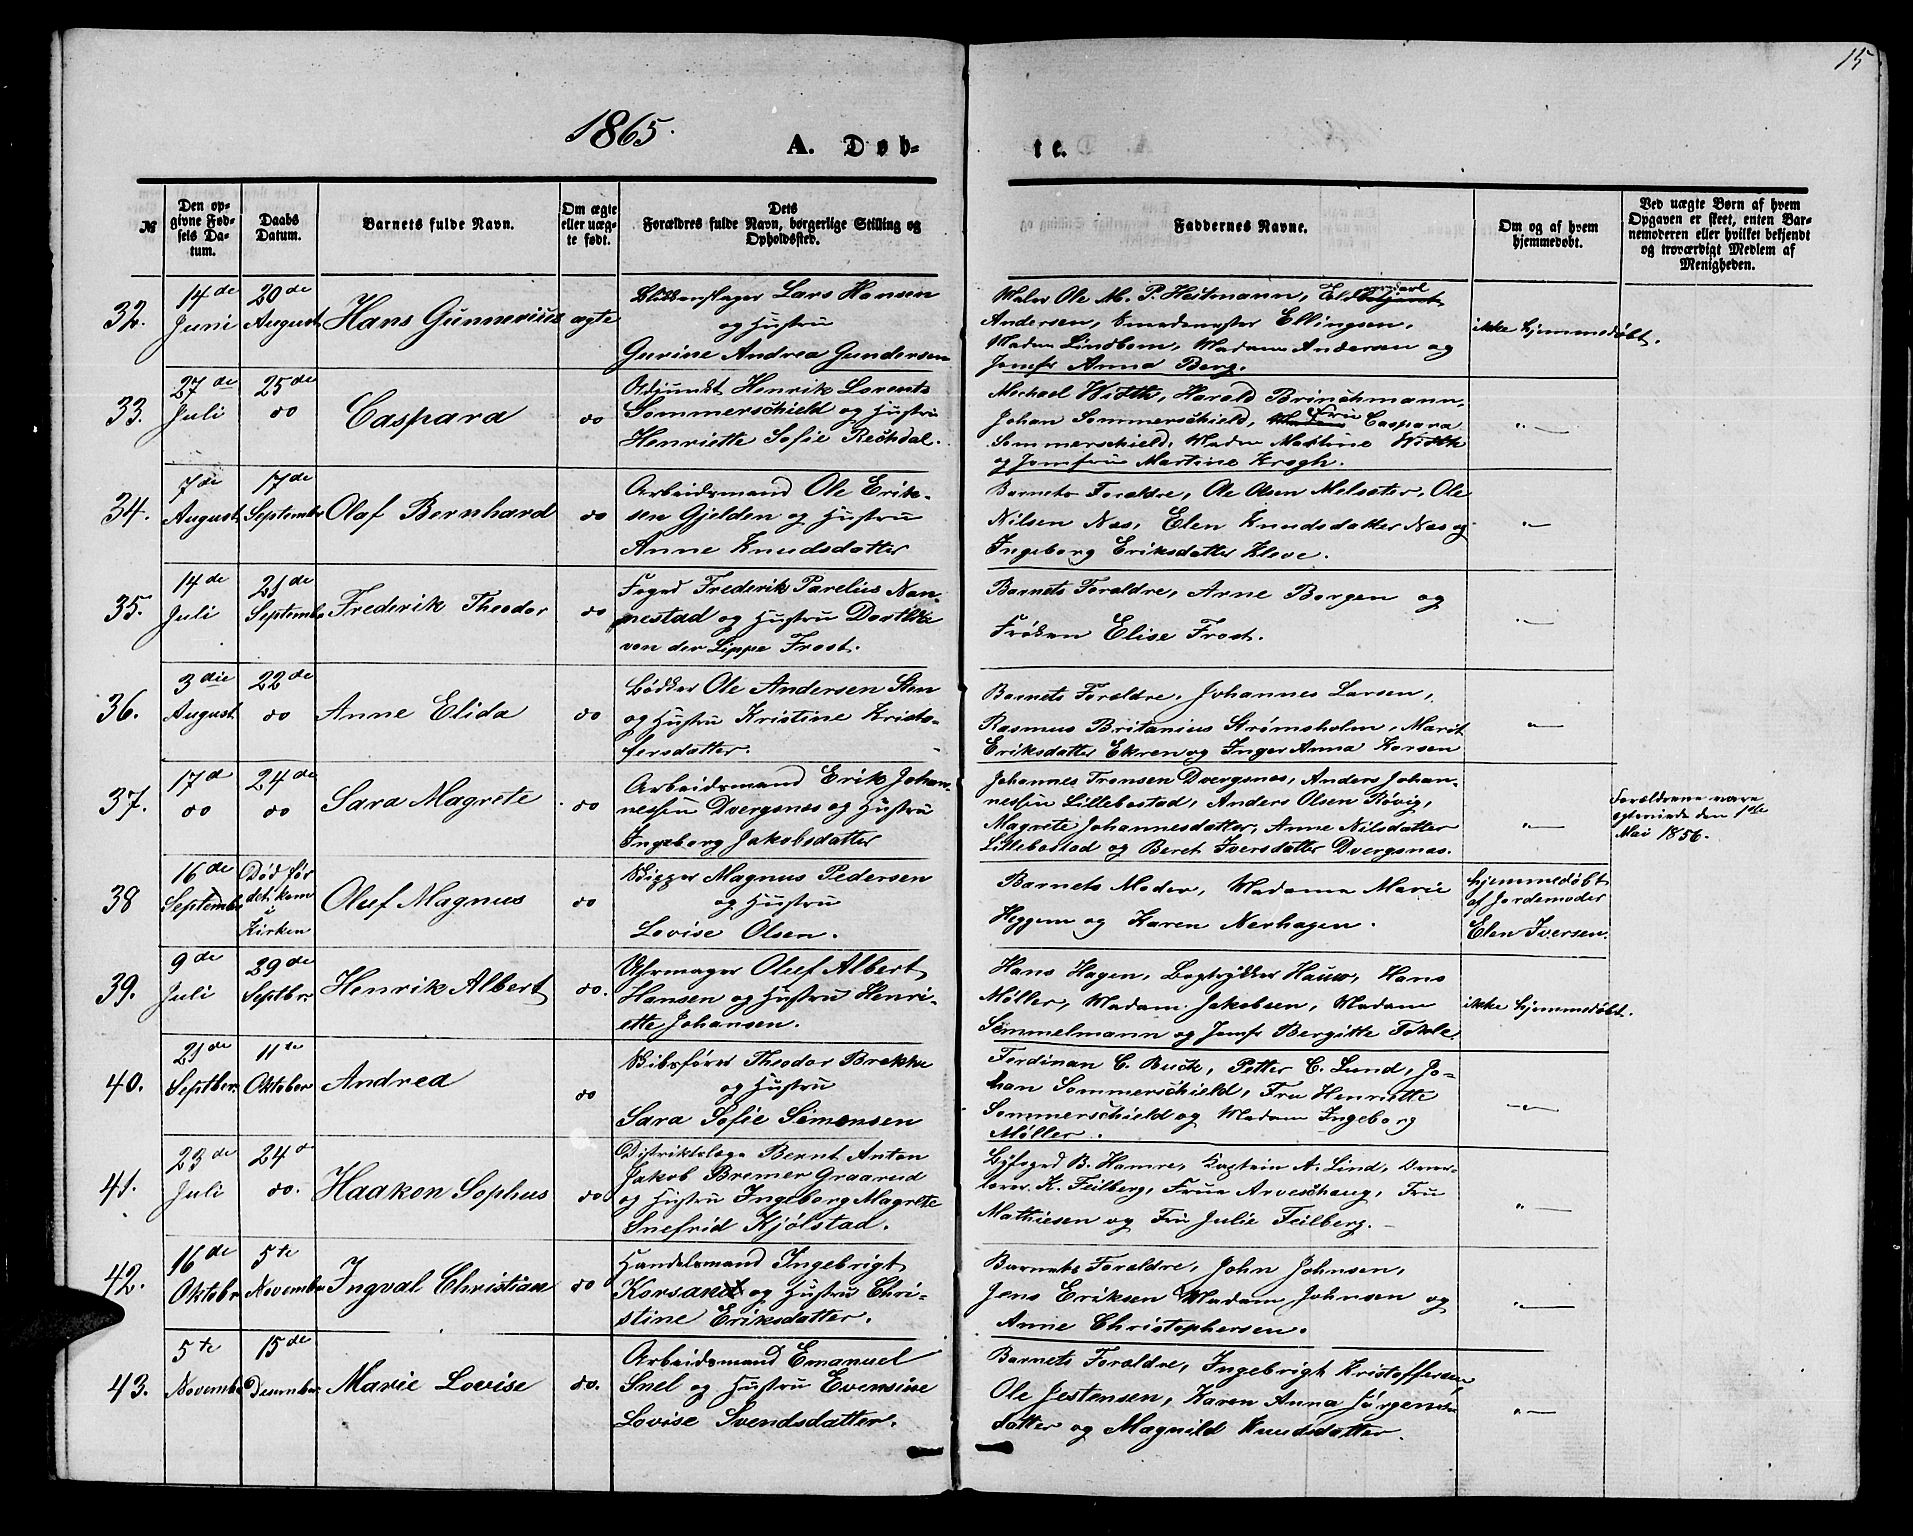 15
1865.
A. Døb-
te.
№
Den opgivne Fødsels Datum.
Daabs Datum.
Barnets fulde Navn.
Om ægte eller uægte født.
Dets Forældres fulde Navn, borgerlige Stilling og Opholdssted.
Faddernes Navne.
Om og af hvem hjemmedøbt.
Ved uægte Børn af hvem Opgaven er skeet, enten Barnemoderen eller hvilket bekjendt og troværdigt Medlem af Menigheden.
32.
14de Juni
20de August
Hans Gunnerius
ægte
Blikkenslager Lars Hansen
og Hustru
Gurine Andrea Gundersen
Maler Ole M. P. Heitmann,
Andersen, Smedemester Ellingsen,
Madm Lindbom, Madam Andersen og
Jomfr Anna Berg.
ikke hjemmedøbt.
33.
27de Juli
25de do
Caspara
do
Adjunkt Henrik Lorents
Sommerschield og Hustru
Henriette Sofie Rechdal.
Michael Width, Harald Brinchmann,
Johan Sommerschield, Fru Caspara
Sommerschield, Madm Martine Width
og Jomfru Martine Krogh.
"—
34.
7de August
17de September
Olaf Bernhard
do
Arbeidsmand Ole Erik-
sen Gjelden og Hustru
Anne Knudsdatter
Barnets Forældre, Ole Olsen Melsæter, Ole
Nilsen Næs, Elen Knudsdatter Næs og
Ingeborg Eriksdatter Kleve.
"—
35.
14de Juli
21de September
Frederik Theodor
do
Foged Frederik Parelius Nan-
nestad og Hustru Dorthea
von der Lippe Frost.
Barnets Forældre, Arne Borgen og
Frøken Elise Frost.
"—
36.
3die August
22de do
Anne Elida
do
Bødker Ole Andersen Sten
og Hustru Kristine Kristo-
fersdatter.
Barnets Forældre, Johannes Larsen,
Rasmus Britanius Strømsholm, Marit
Eriksdatter Ekren og Inger Anna Korsen
"—
37.
17d do
24de do
Sara Magrete
do
Arbeidsmand Erik Johan-
nessen Dvergsnes og Hustru
Ingeborg Jakobsdatter
Johannes Tronsen Dvergsnæs, Anders Johan-
nessen Lillebostad, Anders Olsen Røvig,
Magrete Johannesdatter, Anne Nilsdatter
Lillebostad og Beret Iversdatter Dvergsnæs.
"—
Forældrene vare
egteviede den 1ste
Mai 1856.
38
16de September
Død før
det kom
i
Kirken
Oluf Magnus
do
Skipper Magnus Pedersen
og Hustru
Lovise Olsen.
Barnets Moder, Madame Marie
Heggem og Karen Nerhagen.
hjemmedøbt
af Jordemoder
Elen Iversen.
39.
9de Juli
29de Septber
Henrik Albert
do.
Uhrmager Oluf Albert
Hansen og Hustru Henri-
ette Johansen.
Hans Hagen, Bogtrykker Hauw, Hans
Møller, Madam Jakobsen, Madam
Semmelmann og Jomfr Bergitte Tokle.
ikke hjemmedøbt.
40.
21de Septber
11te Oktober
Andrea
do
Skibsfører Theodor Brekke
og Hustru
Sara Sofie Simensen
Ferdinan C. Buck, Petter C. Lund, Jo-
han Sommerschield, Fru Henriette
Sommerschield og Madam Ingeborg
Møller.
"—
41.
23de Juli
24d do.
Haakon Sophus
do
Distriktslæge Bernt Anton
Jakob Bremer Graarud
og Hustru Ingeborg Magrete
Snefrid Kjølstad.
Byfoged B. Hamre, Kaptein A. Lind,
K. Feilberg, Frue Arveschoug, Fru
Mathiesen og Fru Julie Feilberg.—
"—
42.
16de Oktober
5te November
Ingval Christian
do
Handelsmand Ingebrigt
Korsan og Hustru Chri-
stine Eriksdatter.
Barnets Forældre, John Johnsen,
Jens Eriksen Madam Johnsen og
Anne Christophersen.
"—
43.
5te November
15de Desember
Marie Lovise
do.
Arbeidsmand Emanuel
Snel og Hustru Evensine
Lovise Svendsdatter.
Barnets Forældre, Ingebrigt Kristoffersen,
Ole Jestensen, Karen Anna Jørgens-
datter og Magnild Knudsdatter.
"—